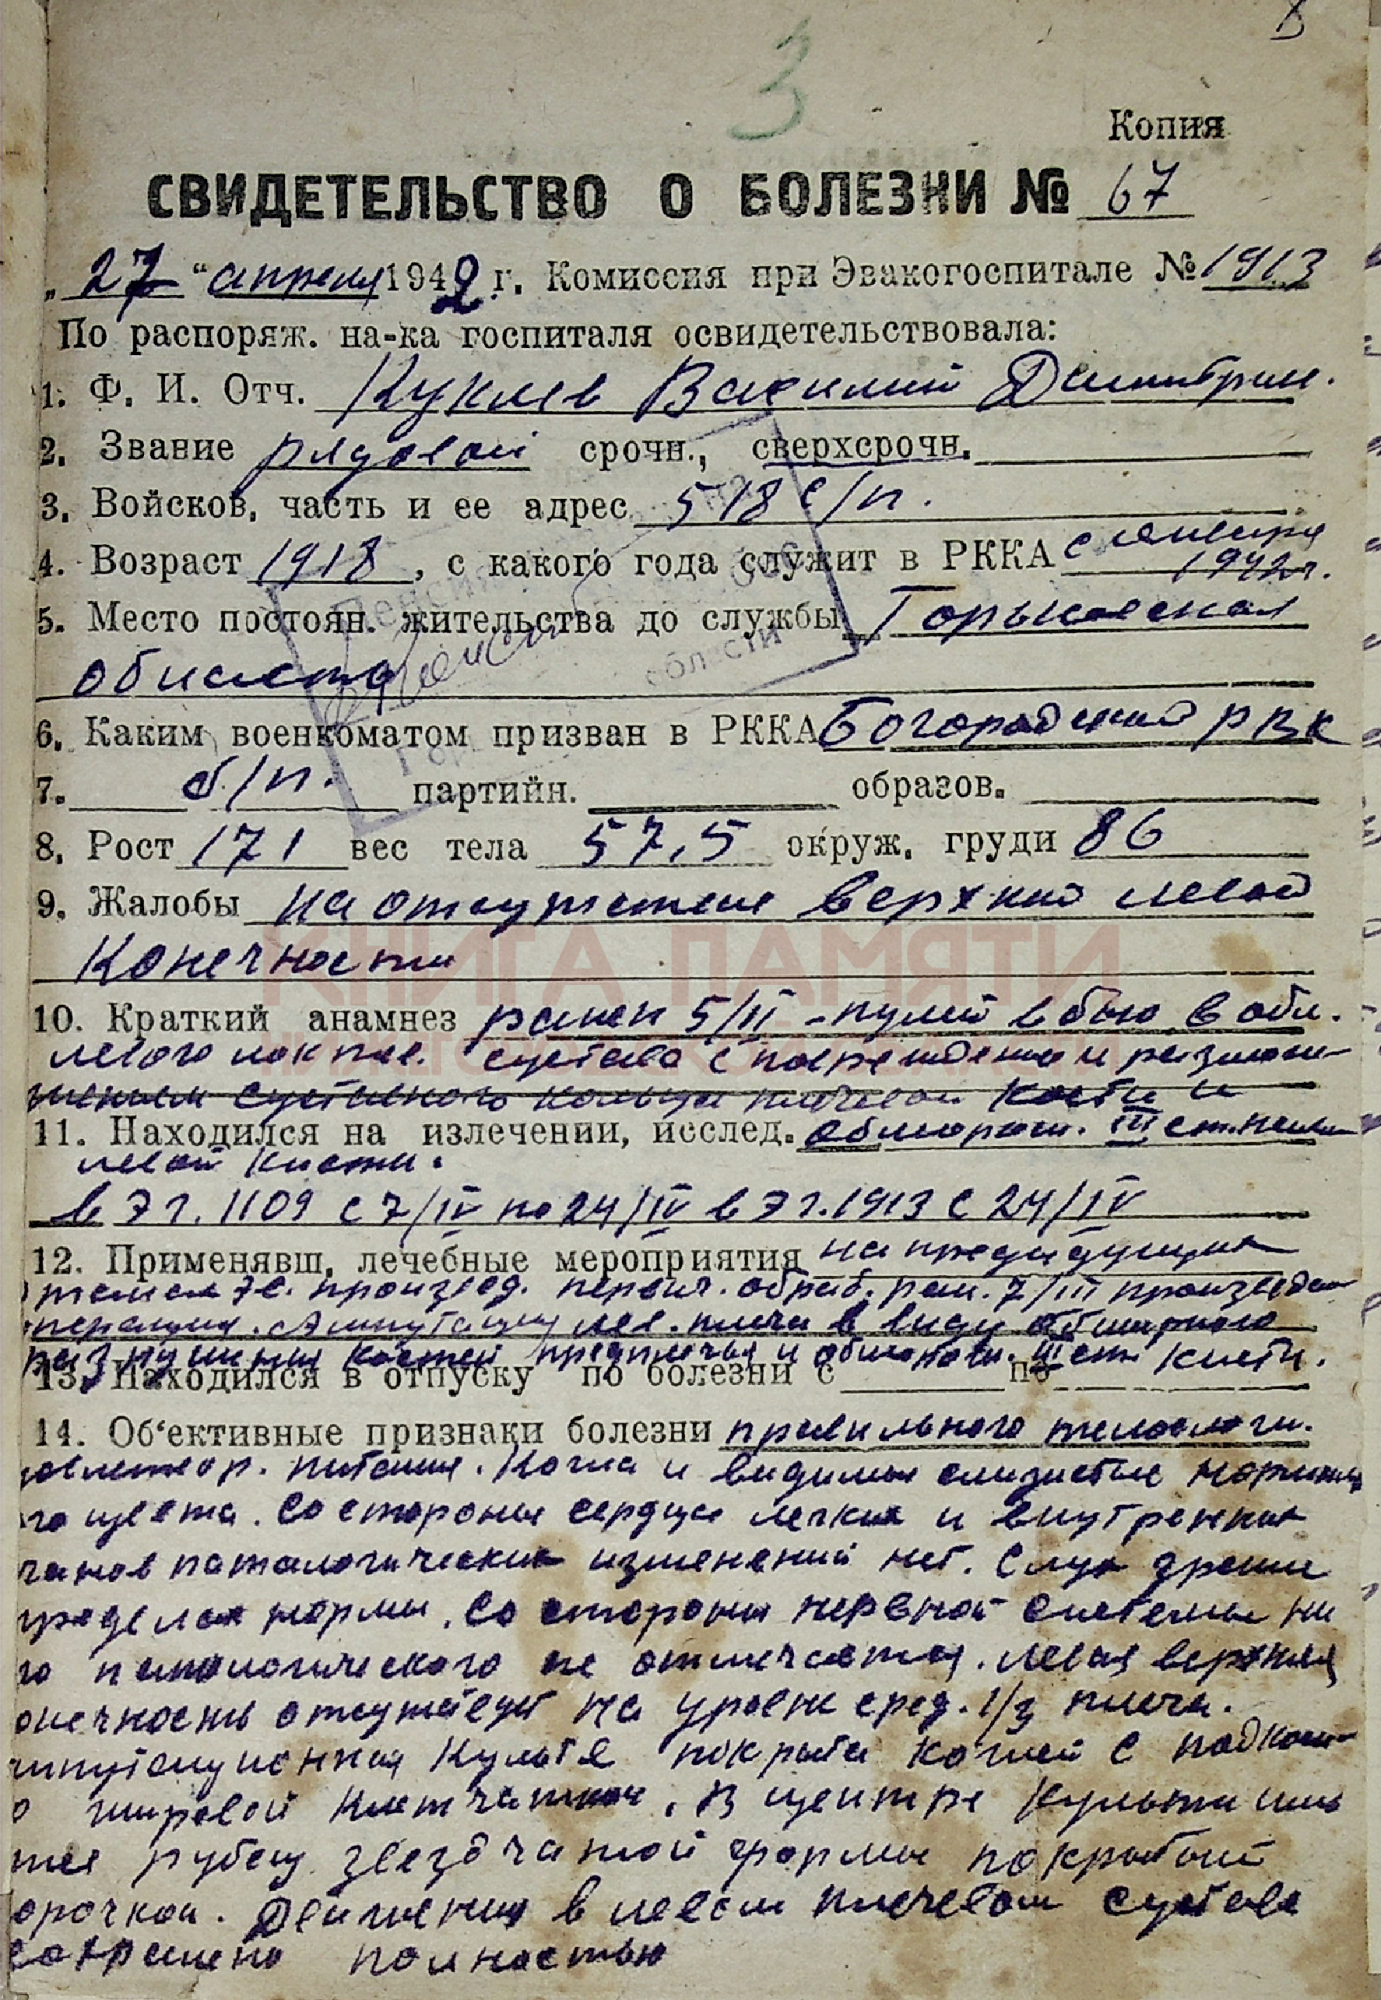 3
Копия
СВИДЕТЕЛЬСТВО О БОЛЕЗНИ № 67
„27“ апреля 1942 г. Комиссия при Эвакогоспитале № 1913
По распоряж. на-ка госпиталя освидетельствовала:
1. Ф. И. Отч. Куклев Василий Дмитрии.
2. Звание рядовой срочн., сверхсрочн.
3. Войсков. часть и ее адрес 518 с/п.
4. Возраст 1918, с какого года служит в РККА с января 1942 г.
5. Место постоян. жительства до службы Горьковская
область
6. Каким военкоматом призван в РККА Богородский РВК
7. б/п. партийн. образов.
8. Рост 171 вес тела 57,5 окруж. груди 86
9. Жалобы на отсутствие верхней левой
конечности
КНИГА ПАМЯТИ
НИЖЕГОРОДСКОЙ ОБЛАСТИ
10. Краткий анамнез ранен 5/II - пулей в бою в обл.
левого локтев. сустава с повреждением и размозж-
жением суставного конца плечевой кости и
11. Находился на излечении, исслед. обморож. III степени
левой кисти.
в ЭГ. 1109 с 7/IV по 24/IV в ЭГ. 1913 с 24/IV
12. Применявш. лечебные мероприятия на предыдущих
этапах эв. произвед. первич. обраб. ран. 7/III произведен
операция. Ампутация лев. плеча в виду обширного
разрушения костей предплечья и обморож. III ст. кисти.
13. Находился в отпуску по болезни с по
14. Об‘ективные признаки болезни правильного телослож.
удовлетвор. питания. Кожа и видимые слизистые нормальн
ого цвета. Со стороны сердца легких и внутренних
органов патологических изменений нет. Слух зрение
пределах нормы. Со стороны нервной системы ни
го патологического не отмечается. Левая верхняя
онечность отсутствует на уровне сред. 1/3 плеча.
мпутационная культя покрыта кожей с подкож-
о жировой клетчаткой. В центре культи име
тся рубец звездчатой формы покрытый
орочкой. Движения в левом плечевом суставе
сохранено полностью